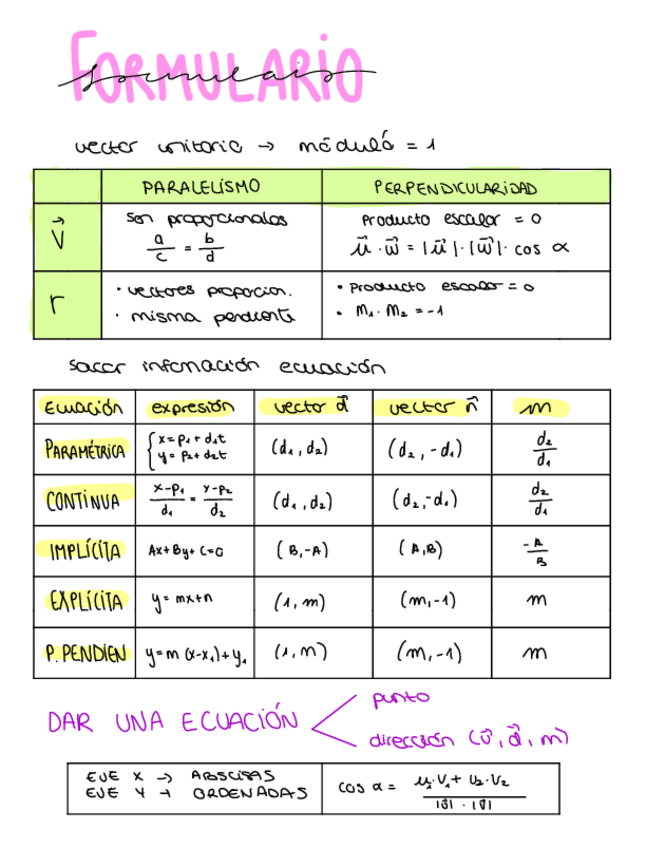 FORMULARIO
formulario
vector unitario → módulo = 1
PARALELISMO PERPENDICULARIDAD
V⃗ son proporcionales a/c = b/d Producto escalar = 0 u⃗ · w⃗ = |u⃗| · |w⃗| · cos α
r · vectores proporcion. · misma pendiente • Producto escalar = 0 • m₁ · m₂ = -1
sacar información ecuación
Ecuación expresión vector d⃗ vector n⃗ m
PARAMÉTRICA { x = p₁ + d₁t y = p₂ + d₂t (d₁, d₂) (d₂, -d₁) d₂/d₁
CONTINUA x-p₁/d₁ = y-p₂/d₂ (d₁, d₂) (d₂, -d₁) d₂/d₁
IMPLÍCITA Ax + By + C = 0 (B, -A) (A, B) -A/B
EXPLÍCITA y = mx + n (1, m) (m, -1) m
P. PENDIEN y = m (x-x₁) + y₁ (1, m) (m, -1) m
DAR UNA ECUACIÓN < punto
dirección (v⃗, d⃗, m)
EJE X → ABSCISAS
EJE Y → ORDENADAS
cos α = u₁·V₁ + U₂·V₂ / |u⃗| · |v⃗|